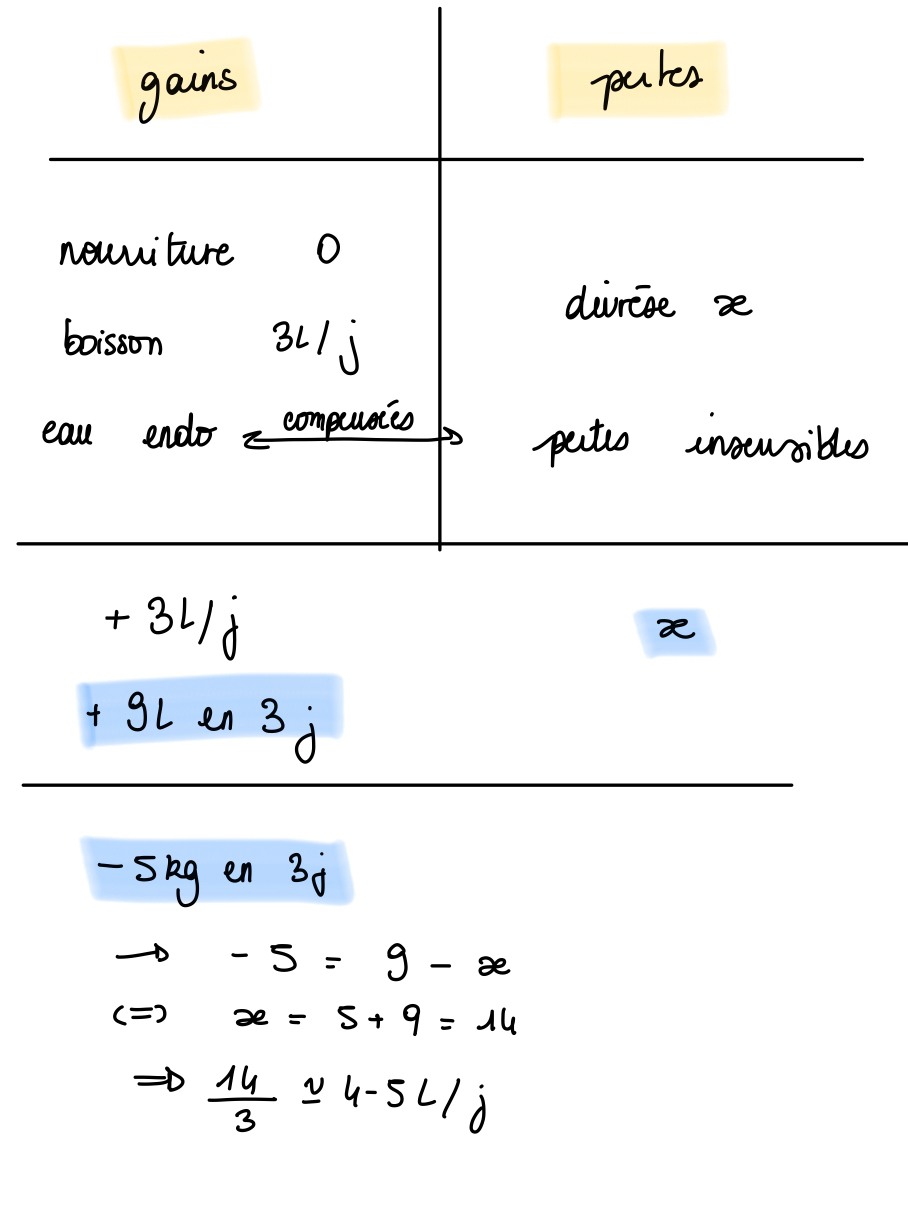 gains pertes
nourriture 0
diurèse x
boisson 3L/j
eau endo compensées pertes insensibles
+ 3L/j x
+ 9L en 3j
- 5kg en 3j
→ - 5 = 9 - x
<=> x = 5 + 9 = 14
⇒ 14/3 ≃ 4-5 L/j